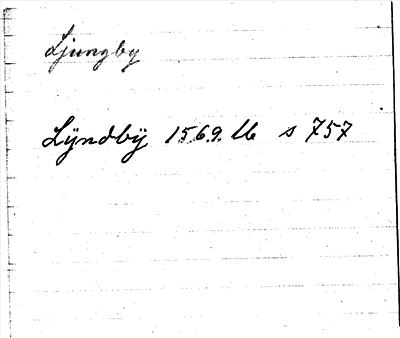 Ljungby
Lÿndbÿ 1569. Ub s 757